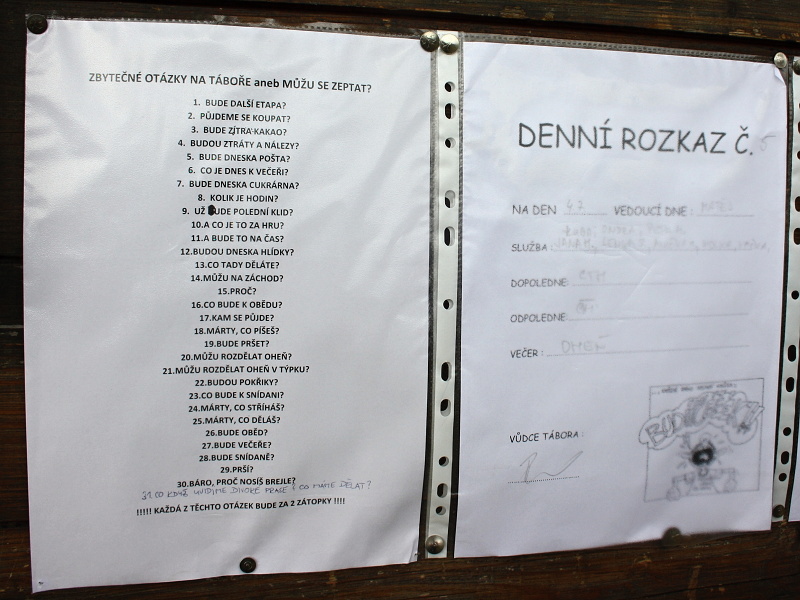 ZBYTEČNÉ OTÁZKY NA TÁBOŘE aneb MŮŽU SE ZEPTAT?
1. BUDE DALŠÍ ETAPA?
2. PŮJDEME SE KOUPAT?
3. BUDE ZÍTRA KAKAO?
4. BUDOU ZTRÁTY A NÁLEZY?
5. BUDE DNESKA POŠTA?
6. CO JE DNES K VEČEŘI?
7. BUDE DNESKA CUKRÁRNA?
8. KOLIK JE HODIN?
9. UŽ BUDE POLEDNÍ KLID?
10.A CO JE TO ZA HRU?
11.A BUDE TO NA ČAS?
12.BUDOU DNESKA HLÍDKY?
13.CO TADY DĚLÁTE?
14.MŮŽU NA ZÁCHOD?
15.PROČ?
16.CO BUDE K OBĚDU?
17.KAM SE PŮJDE?
18.MÁRTY, CO PÍŠEŠ?
19.BUDE PRŠET?
20.MŮŽU ROZDĚLAT OHEŇ?
21.MŮŽU ROZDĚLAT OHEŇ V TÝPKU?
22.BUDOU POKŘIKY?
23.CO BUDE K SNÍDANI?
24.MÁRTY, CO STŘÍHÁŠ?
25.MÁRTY, CO DĚLÁŠ?
26.BUDE OBĚD?
27.BUDE VEČEŘE?
28.BUDE SNÍDANĚ?
29.PRŠÍ?
30.BÁRO, PROČ NOSÍŠ BREJLE?
31. CO KDYŽ UVIDÍME DIVOKÉ PRASE CO MÁME DĚLAT?
!!!!! KAŽDÁ Z TĚCHTO OTÁZEK BUDE ZA 2 ZÁTOPKY !!!!
DENNÍ ROZKAZ Č. 5
NA DEN 4.7. VEDOUCÍ DNE:
SLUŽBA:
DOPOLEDNE:
ODPOLEDNE:
VEČER: OHEŇ
VŮDCE TÁBORA: